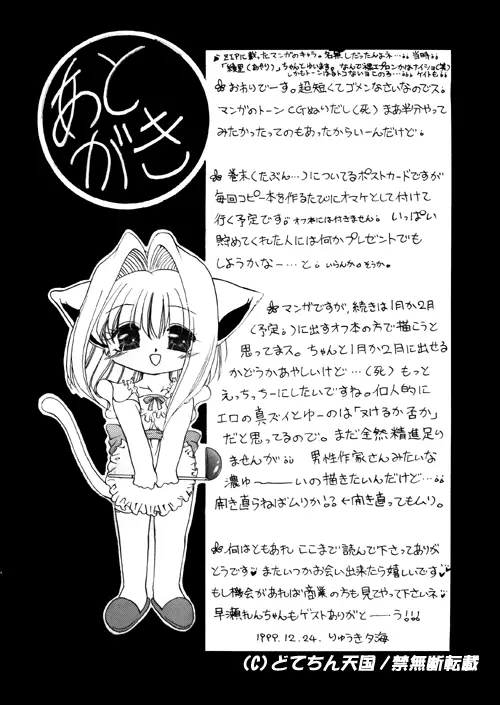 あとがき
ZIPに載ったマンガのキャラ。名無しだったんよネ…当時
「綾里（あやり）」ちゃんとゆいます。なんで裸エプロンかはナイショ(笑)
しかもトーンはるトコないヨこのコろ…。ゲイトも
おわりでーす。超短くてゴメンなさいなのデス。
マンガのトーンCGぬりだし（死）まあ半分やって
みたかったってのもあったからいーんだけど。
巻末（たぶん…）についてるポストカードですが
毎回コピー本を作るたびにオマケとして付けて
行く予定です。オフ本には付きません。いっぱい
貯めてくれた人には何かプレゼントでも
しようかなー…と。いらんか。そうか。
マンガですが、続きは1月か2月
（予定。）に出すオフ本の方で描こうと
思ってまス。ちゃんと1月か2月に出せる
かどうかあやしいけど…（死）もっと
えっちっちーにしたいですね。個人的に
エロの真ズイとゆーのは「ヌけるか否か」
だと思ってるので。まだ全然精進足り
ませんが。男性作家さんみたいな
濃ゅ〜〜いの描きたいんだけど…
開き直らねばムリか!?←開き直ってもムリ。
何はともあれここまで読んで下さってありが
とうです♥またいつかお会い出来たら嬉しいです♥
もし機会があれば商業の方も見てやって下さいネ
早瀬れんちゃんもゲストありがと〜う!!!
1999.12.24. りゅうき夕海
(C) どてちん天国／禁無断転載